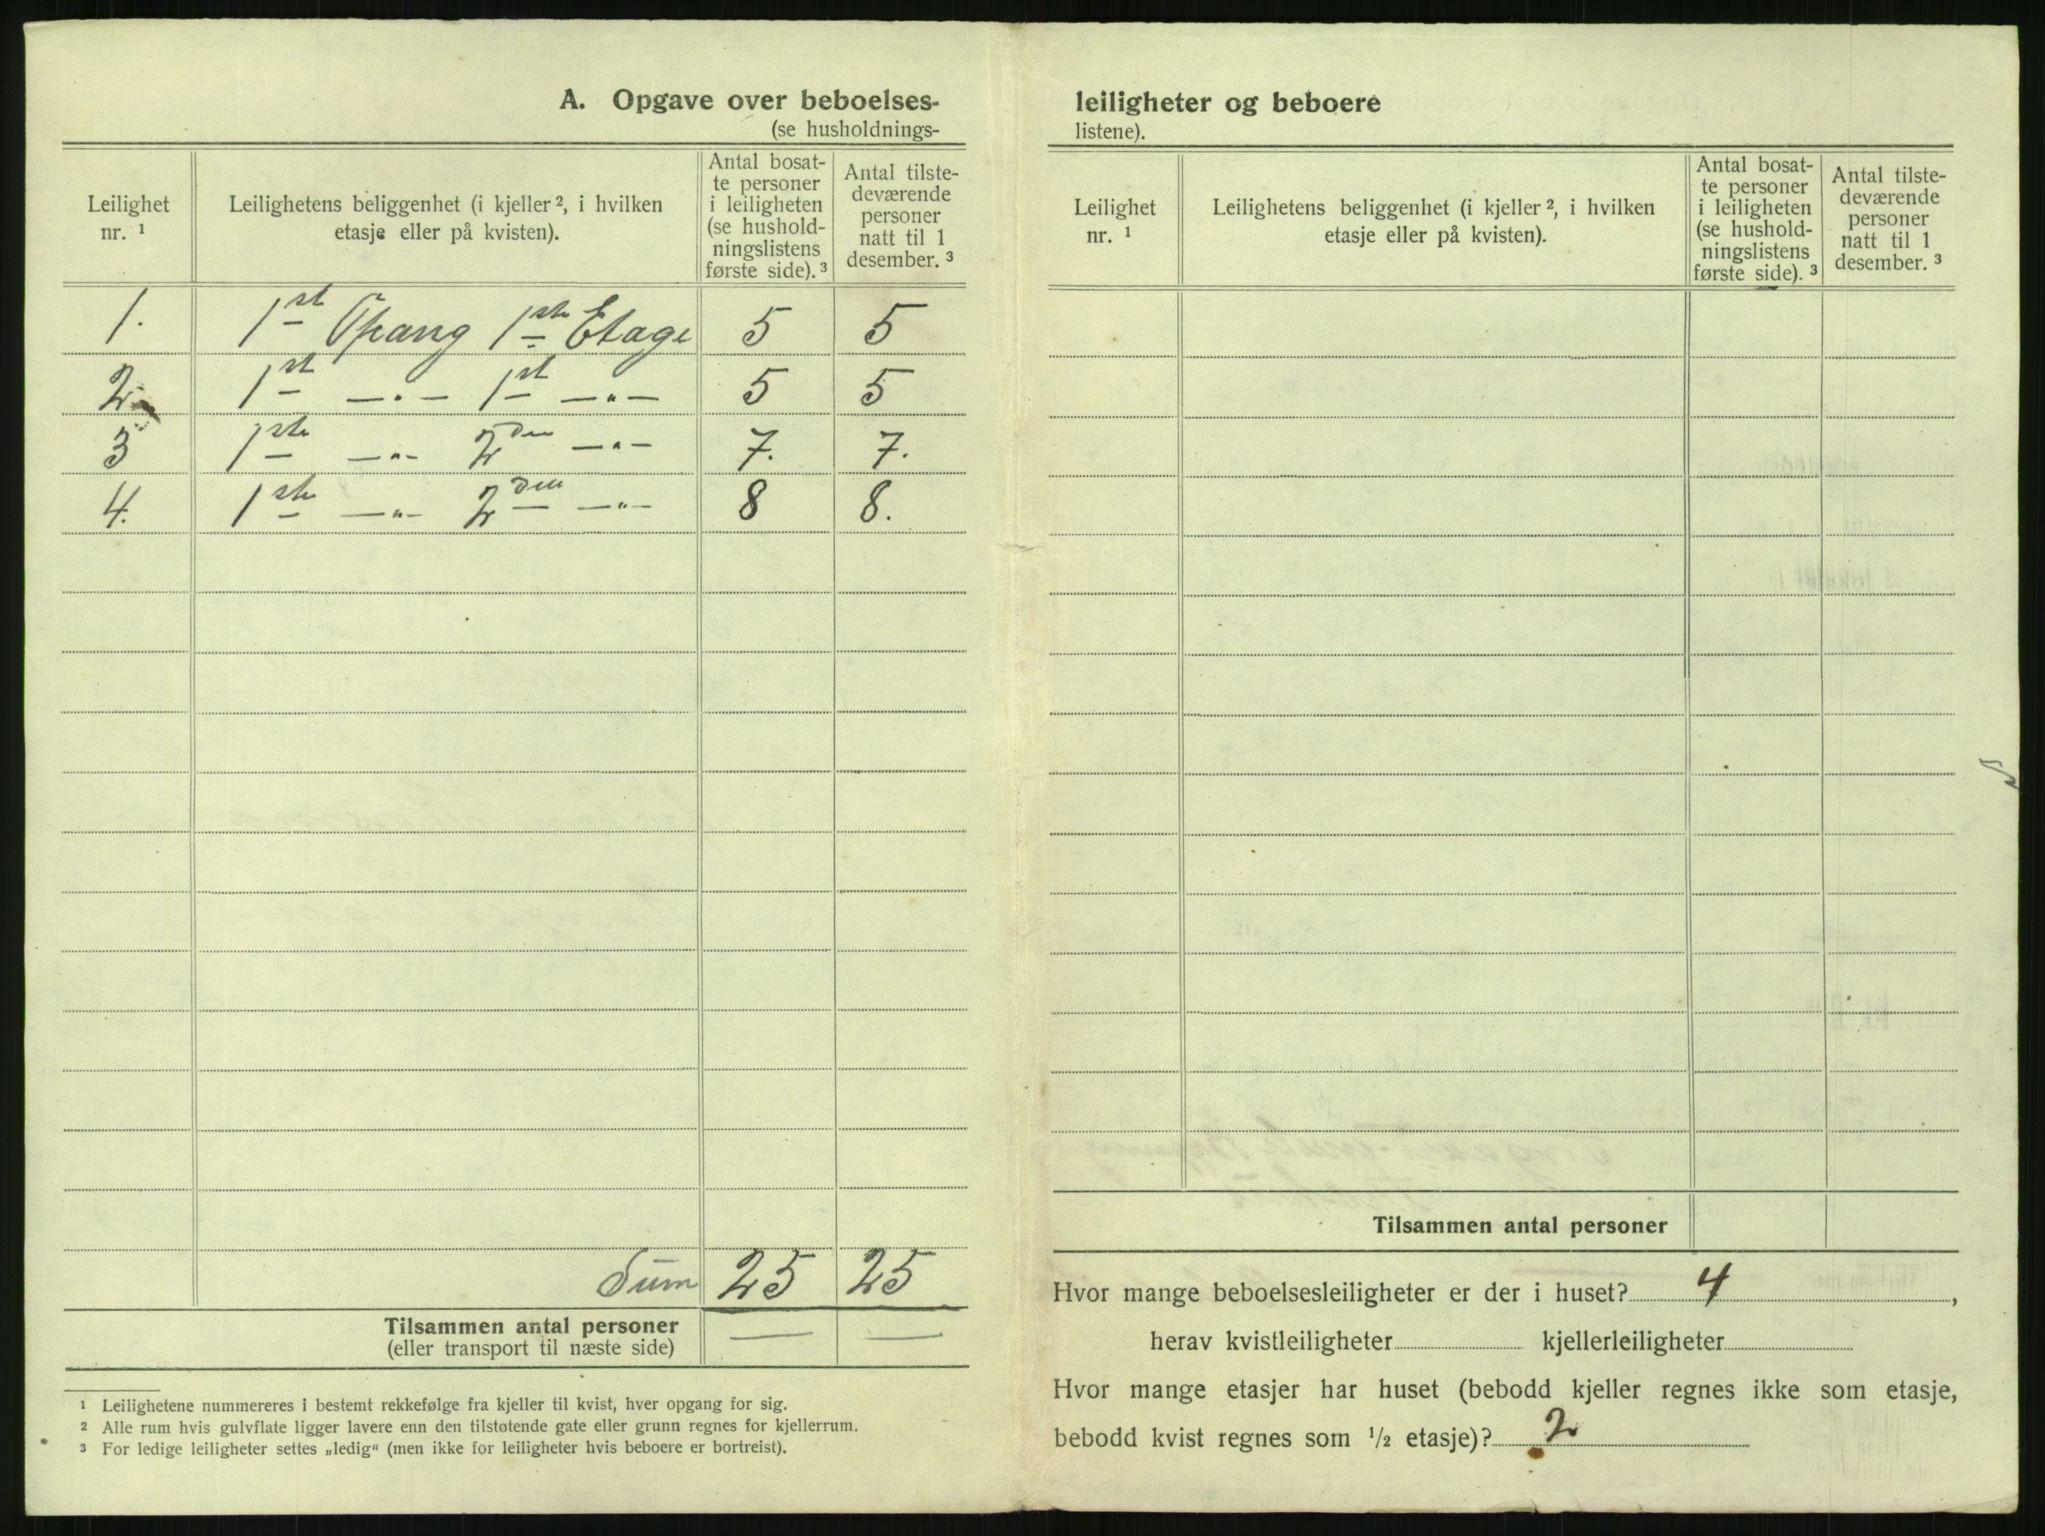 A. Opgave over beboelses-
(se husholdnings-
Leilighet nr. ¹
Leilighetens beliggenhet (i kjeller ², i hvilken etasje eller på kvisten).
Antal bosat-
te personer
i leiligheten
(se hushold-
ningslistens
første side). ³
Antal tilste-
deværende
personer
natt til 1
desember. ³
1. 1st Opang 1ste Etage 5 5
2. 1st —„— 1st —„— 5 5
3 1ste —„— 2den —„— 7. 7.
4. 1ste —„— 2den —„— 8 8.
Sum 25 25
Tilsammen antal personer — —
(eller transport til næste side)
¹ Leilighetene nummereres i bestemt rekkefølge fra kjeller til kvist, hver opgang for sig.
² Alle rum hvis gulvflate ligger lavere enn den tilstøtende gate eller grunn regnes for kjellerrum.
³ For ledige leiligheter settes „ledig“ (men ikke for leiligheter hvis beboere er bortreist).
leiligheter og beboere
listene).
Leilighet nr. ¹
Leilighetens beliggenhet (i kjeller ², i hvilken etasje eller på kvisten).
Antal bosat-
te personer
i leiligheten
(se hushold-
ningslistens
første side). ³
Antal tilste-
deværende
personer
natt til 1
desember. ³
Tilsammen antal personer
Hvor mange beboelsesleiligheter er der i huset? 4,
herav kvistleiligheter kjellerleiligheter
Hvor mange etasjer har huset (bebodd kjeller regnes ikke som etasje,
bebodd kvist regnes som ½ etasje)? 2